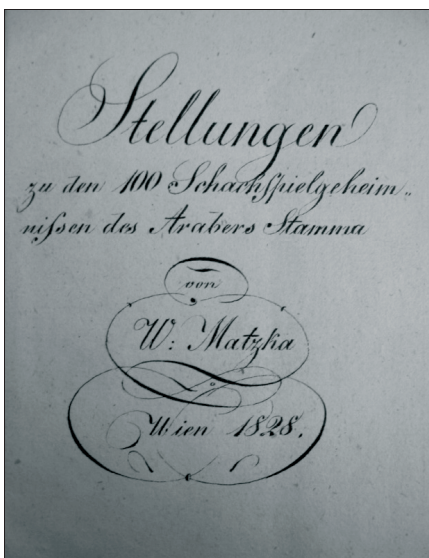 Stellungen
zu den 100 Schachspielgeheim„
nißen des Arabers Stamma
von
W: Matzka
Wien 1828.